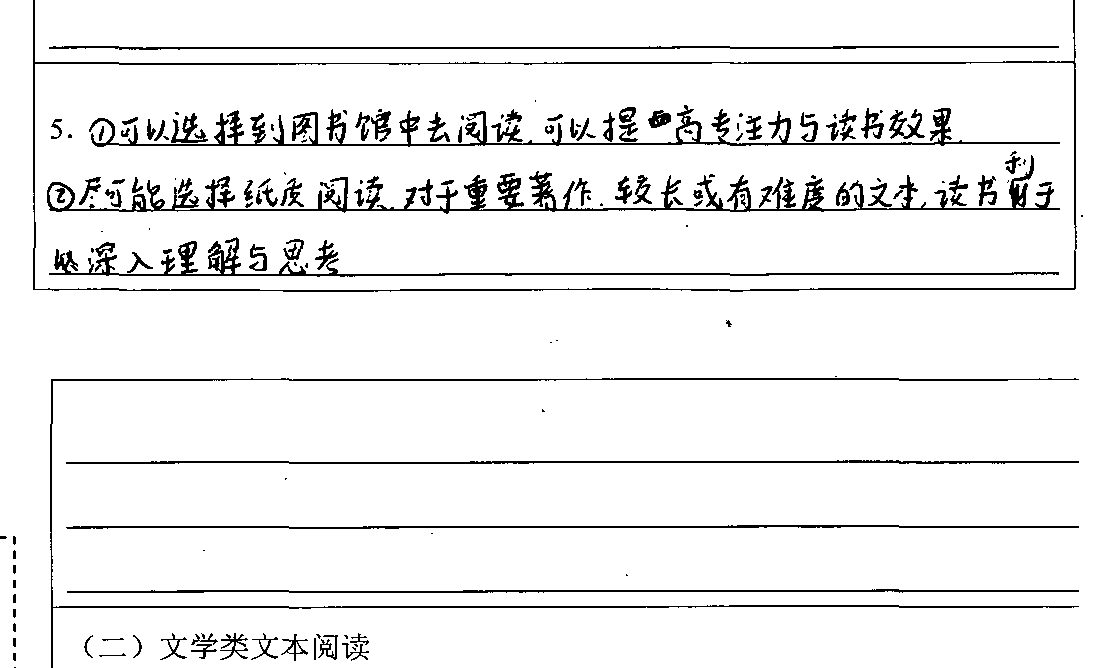 5. ①可以选择到图书馆中去阅读.可以提高专注力与读书效果.
②尽可能选择纸质阅读.对于重要著作.较长或有难度的文本,读书利于
深入理解与思考
（二）文学类文本阅读